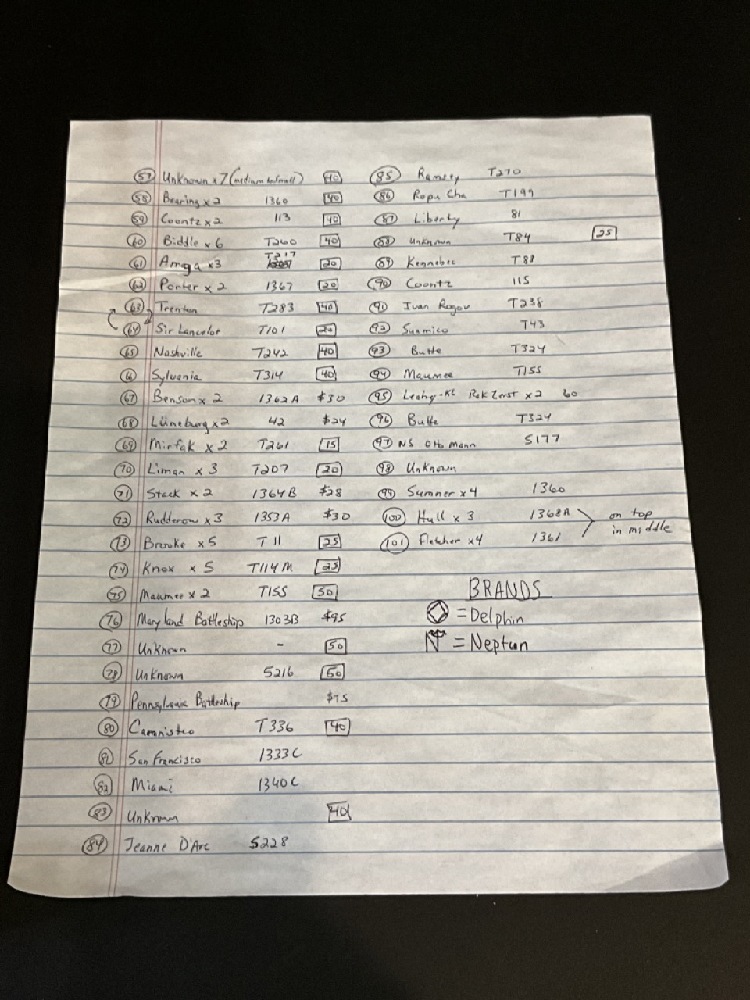 57 Unknown x7 (medium to small) 40
58 Bearing x 2 1360 40
59 Coontz x 2 113 40
60 Biddle x 6 T260 40
61 x3 T217 20
62 Porter x 2 1367 20
63 Trenton T283 40
64 Sir Lancelot T101 20
65 Nashville T242 40
6 Sylvania T314 40
67 Benson x 2 1362A $30
68 Lüneburg x 2 42 $24
69 Mirfak x 2 T261 15
70 Liman x 3 T207 20
71 Stack x 2 1364B $28
72 Rudderow x 3 1353A $30
73 x5 T11 25
74 Knox x 5 T114M 25
75 Maumee x 2 T155 50
76 Maryland Battleship 1303B $95
77 Unknown - 50
78 Unknown 5216 50
79 Pennsylvania Battleship $75
80 T336 40
81 San Francisco 1333C
82 Miami 1340C
83 Unknown 40
84 Jeanne D'Arc S228
85 Ramsey T270
86 T199
87 Liberty 81
88 Unknown T84 25
89 Kennebec T81
90 Coontz 115
91 Ivan Rogov T238
92 T43
93 Butte T324
94 Maumee T155
95 x2 60
96 Butte T324
97 NS Otto Mann S177
98 Unknown
99 Sumner x4 1360
100 Hull x 3 1368A
101 Fletcher x4 1361
on top
in middle
BRANDS
= Delphin
= Neptun